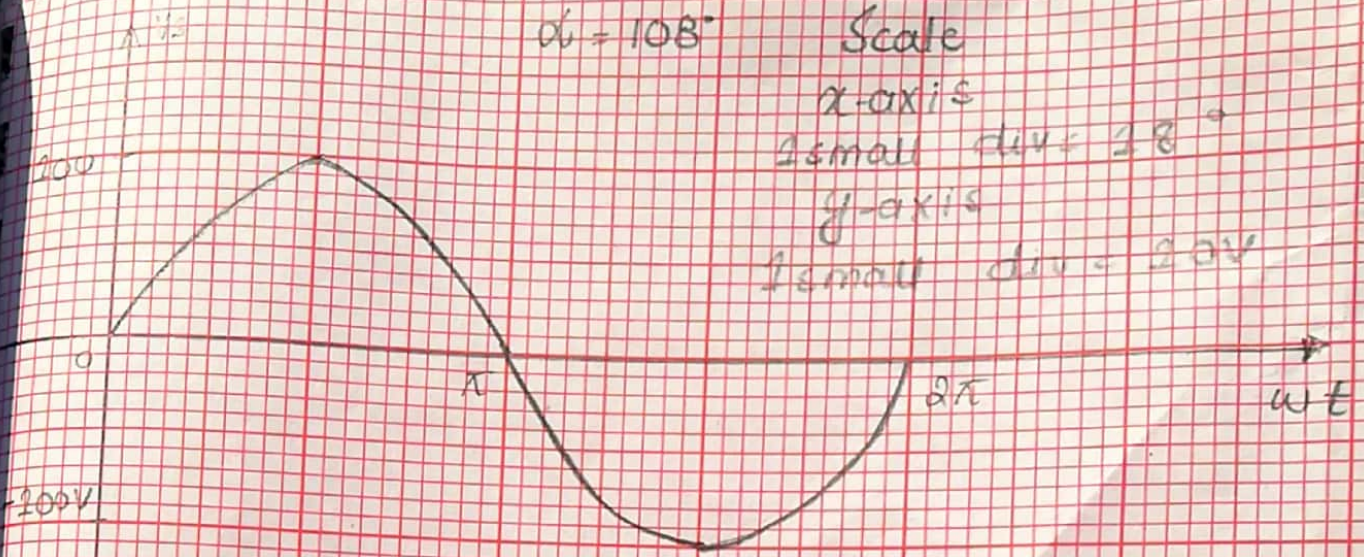 α = 108° Scale
x-axis
1 small div = 18°
y-axis
1 small div = 10V
100
0
π
2π
ωt
-100V